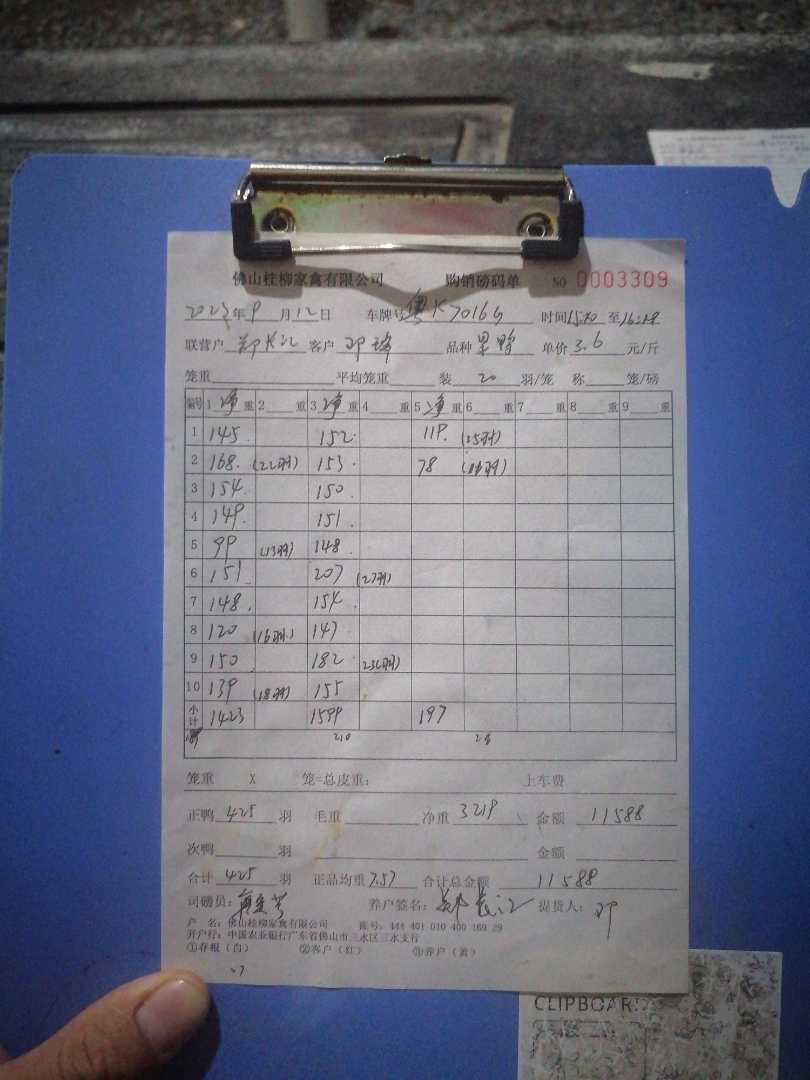 佛山桂柳家禽有限公司 购销磅码单 NO 0003309
2023年9月12日 车牌号粤K7016G 时间15:30至16:28
联营户 郑长江 客户 邓 品种 单价 3.6 元/斤
笼重 平均笼重 装 20 羽/笼 称 笼/磅
编号 1 净 重 2 重 3 净 重 4 重 5 净 重 6 重 7 重 8 重 9 重
1 145 152 119 (15羽)
2 168 (22羽) 153 78
3 154 150
4 149 151
5 99 (13羽) 148
6 151 207 (27羽)
7 148 154
8 120 (16羽) 147
9 150 182 (23羽)
10 139 (18羽) 155
小计 1423 1599 197
210
笼重 X 笼=总皮重: 上车费
正鸭 425 羽 毛重 净重 3219 金额 11588
次鸭 羽 金额
合计 425 羽 正品均重 7.57 合计总金额 11588
司磅员: 养户签名: 郑长江 提货人: 邓
户 名: 佛山桂柳家禽有限公司 账号: 444 401 010 400 169 29
开户行: 中国农业银行广东省佛山市三水区三水支行
①存根(白) ②客户(红) ③养户(黄)
CLIPBOARD